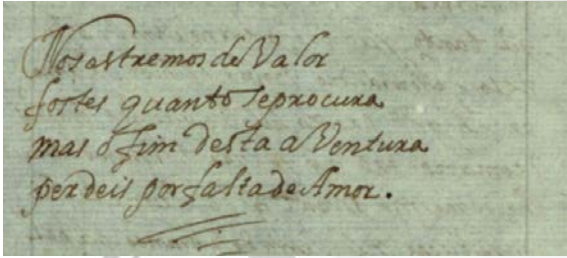 Nos estremos de Valor
fostes quanto se procura
mas o fim desta aVentura
perdeis por falta de Amor.